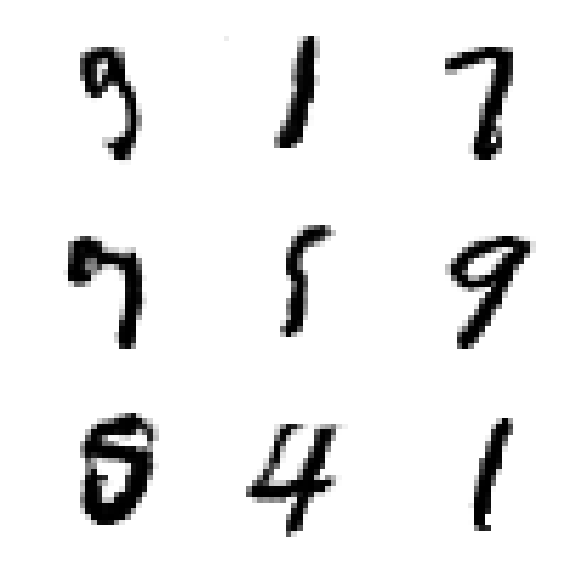 9 1 7
7 5 9
8 4 1